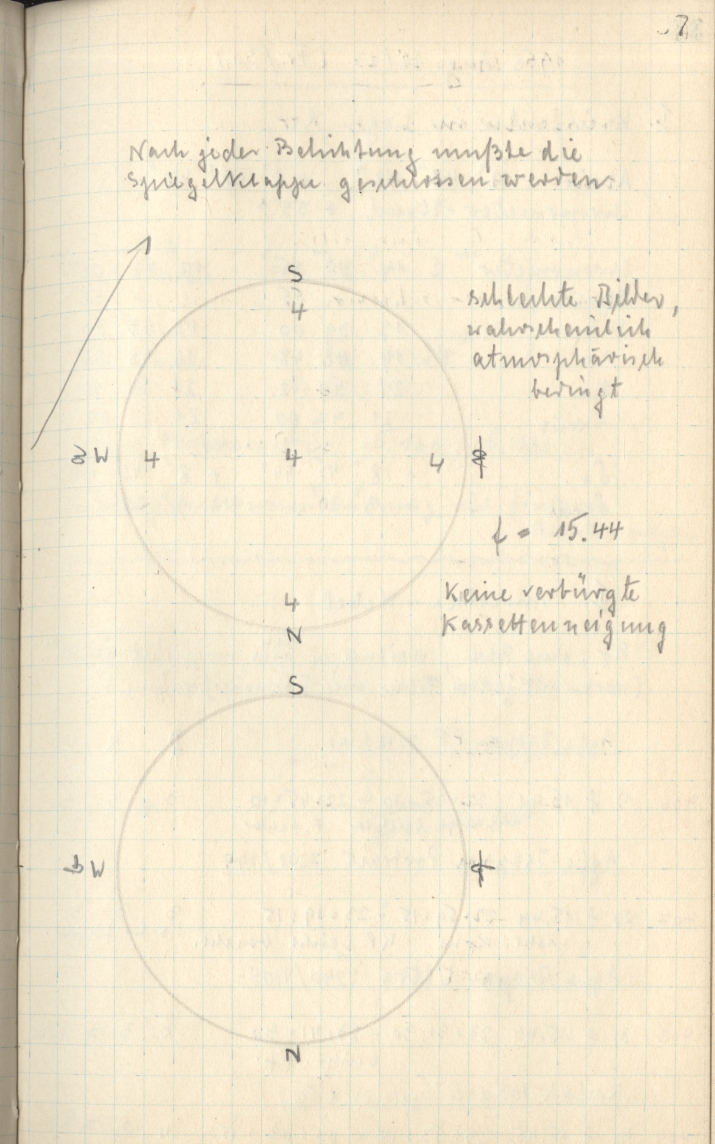 7
Nach jeder Belichtung mußte die
Spiegelklappe geschlossen werden
S
4
schlechte Bilder,
wahrscheinlich
atmosphärisch
bedingt
W 4 4 4
f = 15.44
4
N
Keine verbürgte
Kassettenneigung
S
W
N